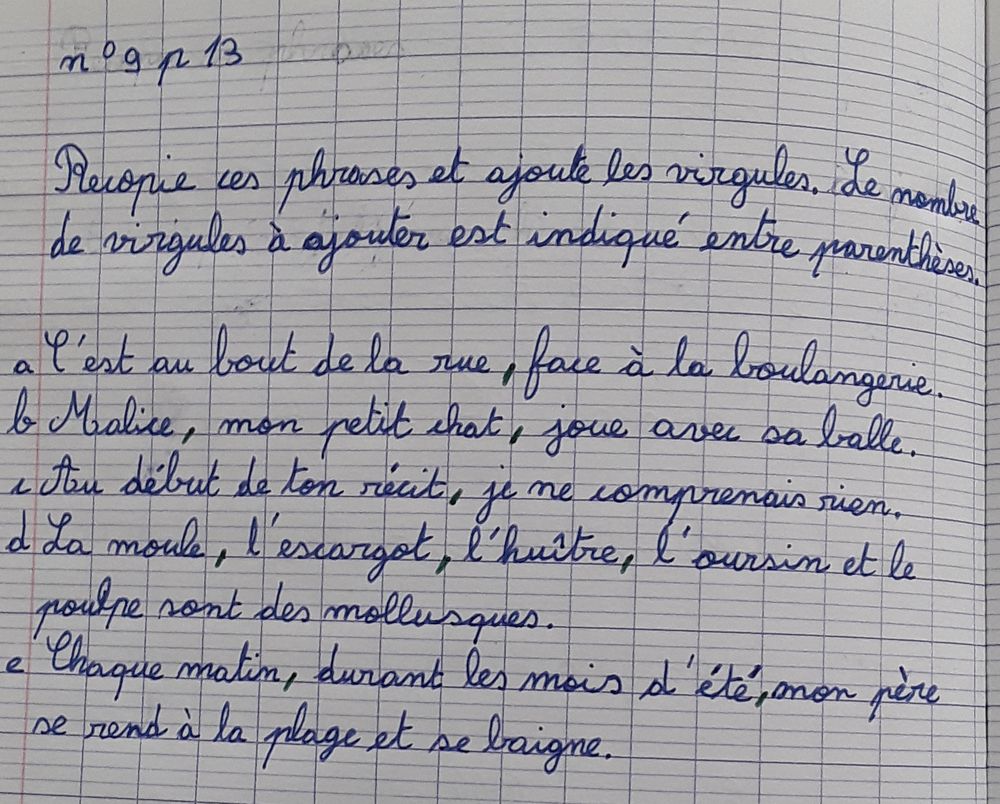 n° 9 p 13
Recopie ces phrases et ajoute les virgules. Le nombre
de virgules à ajouter est indiqué entre parenthèses.
a C'est au bout de la rue, face à la boulangerie.
b Malice, mon petit chat, joue avec sa balle.
c Au début de ton récit, je ne comprenais rien.
d La moule, l'escargot, l'huître, l'oursin et le
poulpe sont des mollusques.
e Chaque matin, durant les mois d'été, mon père
se rend à la plage et se baigne.